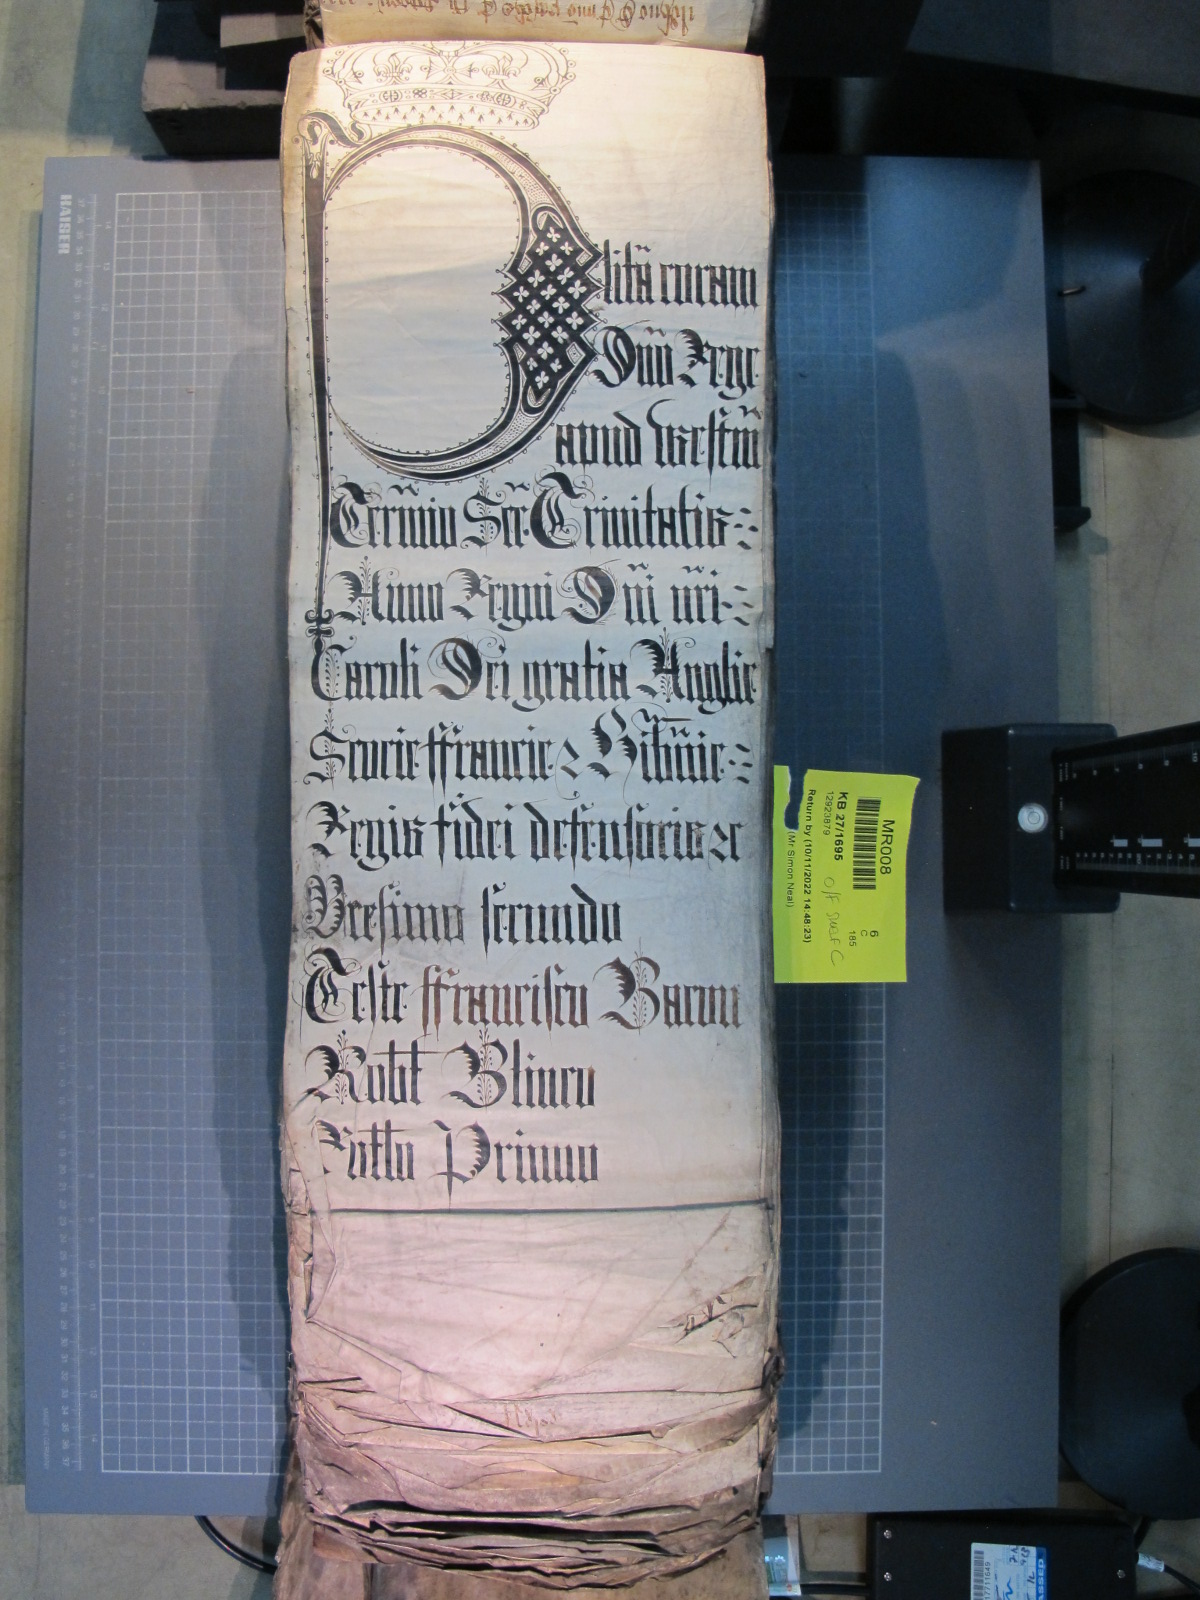 Plita coram
Dno Rege
apud Westm
Termio Sce Trinitatis
Anno Regni Dni nri
Caroli Dei gratia Anglie
Scocie ffrancie & Hibnie
Regis fidei defensoris &c
Vicesimo secundo
Teste ffrancisco Bacon
Robt Blinco
Rotlo Primo
KAISER
MR008
KB 27/1695
12923879
Return by (10/11/2022 14:48:23)
(Mr Simon Neal)
6
C
185